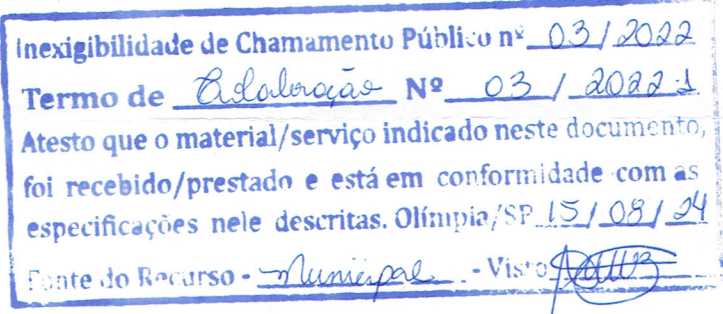 Inexigibilidade de Chamamento Público nº 03/2022
Termo de Colaboração Nº 03/2022.1
Atesto que o material/serviço indicado neste documento,
foi recebido/prestado e está em conformidade com as
especificações nele descritas. Olímpia/SP 15/08/24
Fonte do Recurso - Municipal - Visto